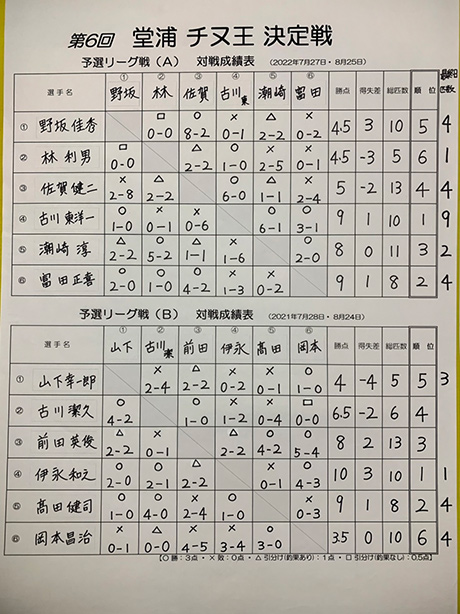 第6回 堂浦 チヌ王 決定戦
予選リーグ戦（A） 対戦成績表 （2022年7月27日・8月25日）
選手名 ① 野坂 ② 林 ③ 佐賀 ④ 古川東 ⑤ 潮崎 ⑥ 富田 勝点 得失差 総匹数 順位
① 野坂 佳吝 □ 0-0 ○ 8-2 × 0-1 △ 2-2 × 0-2 4.5 3 10 5 4
② 林 利男 □ 0-0 △ 2-2 ○ 1-0 × 2-5 × 0-1 4.5 -3 5 6 1
③ 佐賀 健二 × 2-8 △ 2-2 ○ 6-0 △ 1-1 × 2-4 5 -2 13 4 4
④ 古川 東洋一 ○ 1-0 × 0-1 × 0-6 ○ 6-1 ○ 3-1 9 1 10 1 9
⑤ 潮崎 淳 △ 2-2 ○ 5-2 △ 1-1 × 1-6 ○ 2-0 8 0 11 3 2
⑥ 富田 正喜 ○ 2-0 ○ 1-0 ○ 4-2 × 1-3 × 0-2 9 1 8 2 4
予選リーグ戦（B） 対戦成績表 （2021年7月28日・8月24日）
選手名 ① 山下 ② 古川潔 ③ 前田 ④ 伊永 ⑤ 高田 ⑥ 岡本 勝点 得失差 総匹数 順位
① 山下幸一郎 × 2-4 △ 2-2 × 0-2 × 0-1 ○ 1-0 4 -4 5 5 3
② 古川 潔久 ○ 4-2 ○ 1-0 ○ 1-2 × 0-4 □ 0-0 6.5 -2 6 4
③ 前田 英俊 △ 2-2 × 0-1 △ 2-2 ○ 4-2 ○ 5-4 8 2 13 3
④ 伊永 和之 ○ 2-0 ○ 2-1 △ 2-2 × 0-1 ○ 4-3 10 3 10 1 1
⑤ 高田 健司 ○ 1-0 ○ 4-0 × 2-4 ○ 1-0 × 0-3 9 1 8 2 4
⑥ 岡本昌治 × 0-1 △ 0-0 × 4-5 × 3-4 ○ 3-0 3.5 0 10 6 4
【○ 勝：3点 ・ × 敗：0点 ・ △ 引分け(釣果あり)：1点 ・ □ 引分け(釣果なし)：0.5点】